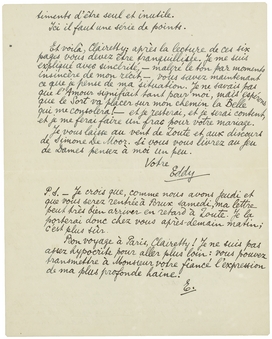 timents d'être seul et inutile.
Ici il faut une série de points.
Et voilà, Clairetty, après la lecture de ces six
pages vous devez être tranquillisée. Je me suis
expliqué avec sincérité, — malgré le ton par moments
insincère de mon récit — vous savez maintenant
ce que je pense de ma situation. Je ne savais pas
que l'Amour signifiait tant pour moi, mais espérons
que le Sort va placer sur mon chemin la Belle
qui me consolera — et je testerai, et je serai content
et me ferai faire un frac pour votre mariage.
Je vous laisse au vent de Zoute et aux discours
de Simone De Moor. Si vous vous livrez au jeu
de Dames pensez à moi un peu.
Votre
Eddy
P.S. — Je crois que, comme nous avons jeudi et
que vous serez rentrée à Brux samedi, ma lettre
peut très bien arriver en retard à Zoute. Je la
porterai donc chez vous après-demain matin;
c'est plus sûr.
Bon voyage à Paris, Clairetty! Je ne suis pas
assez hypocrite pour aller plus loin: vous pouvez
transmettre à Monsieur votre fiancé l'expression
de ma plus profonde haine!
E.